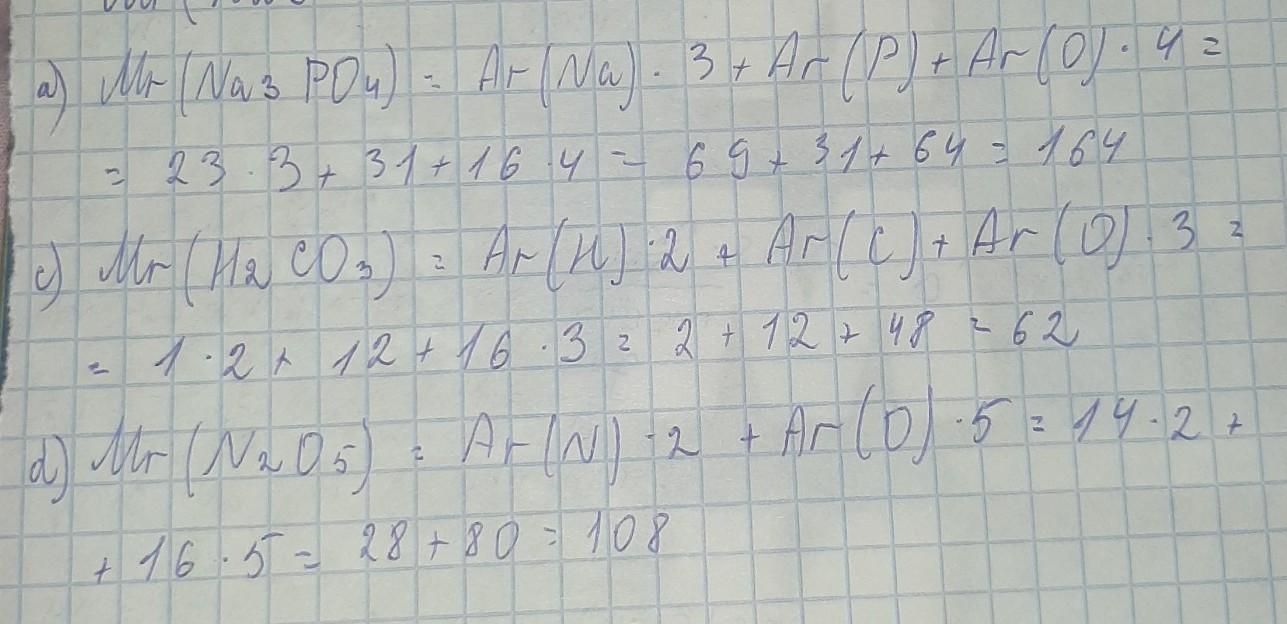 a) Mr(Na₃PO₄) = Ar(Na)·3 + Ar(P) + Ar(O)·4 =
= 23·3 + 31 + 16·4 = 69 + 31 + 64 = 164
c) Mr(H₂CO₃) = Ar(H)·2 + Ar(C) + Ar(O)·3 =
= 1·2 + 12 + 16·3 = 2 + 12 + 48 = 62
d) Mr(N₂O₅) = Ar(N)·2 + Ar(O)·5 = 14·2 +
+ 16·5 = 28 + 80 = 108